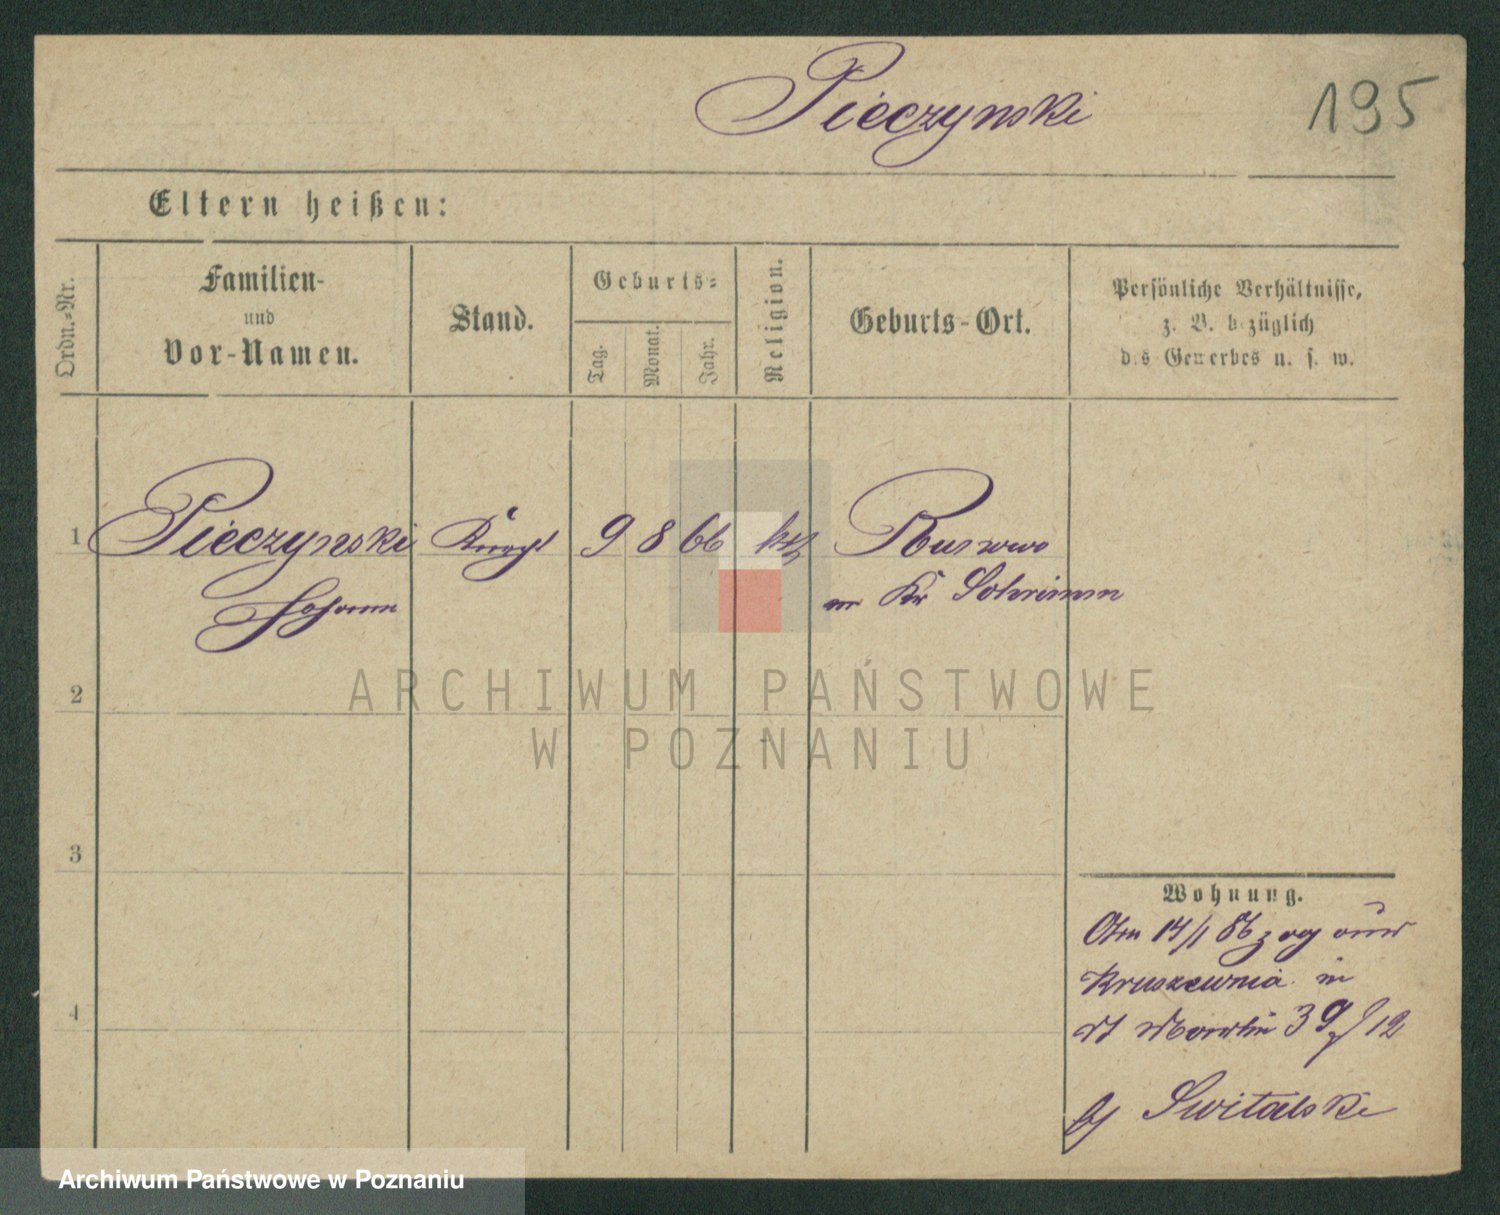 Pieczynski
195
Eltern heißen:
Ordn.-Nr.
Familien-
und
Vor-Namen.
Stand.
Geburts-
Tag.
Monat.
Jahr.
Religion.
Geburts-Ort.
Persönliche Verhältnisse,
z. B. bezüglich
des Gewerbes u. s. w.
1 Pieczynski Knecht 9 8 66 kth
Johann
Kr Schrimm
2
ARCHIWUM PAŃSTWOWE
W POZNANIU
3
4
Wohnung.
Am 14/1 86 zog aus
Kruszewnia in
St Martin 39/12
bj Switalski
Archiwum Państwowe w Poznaniu